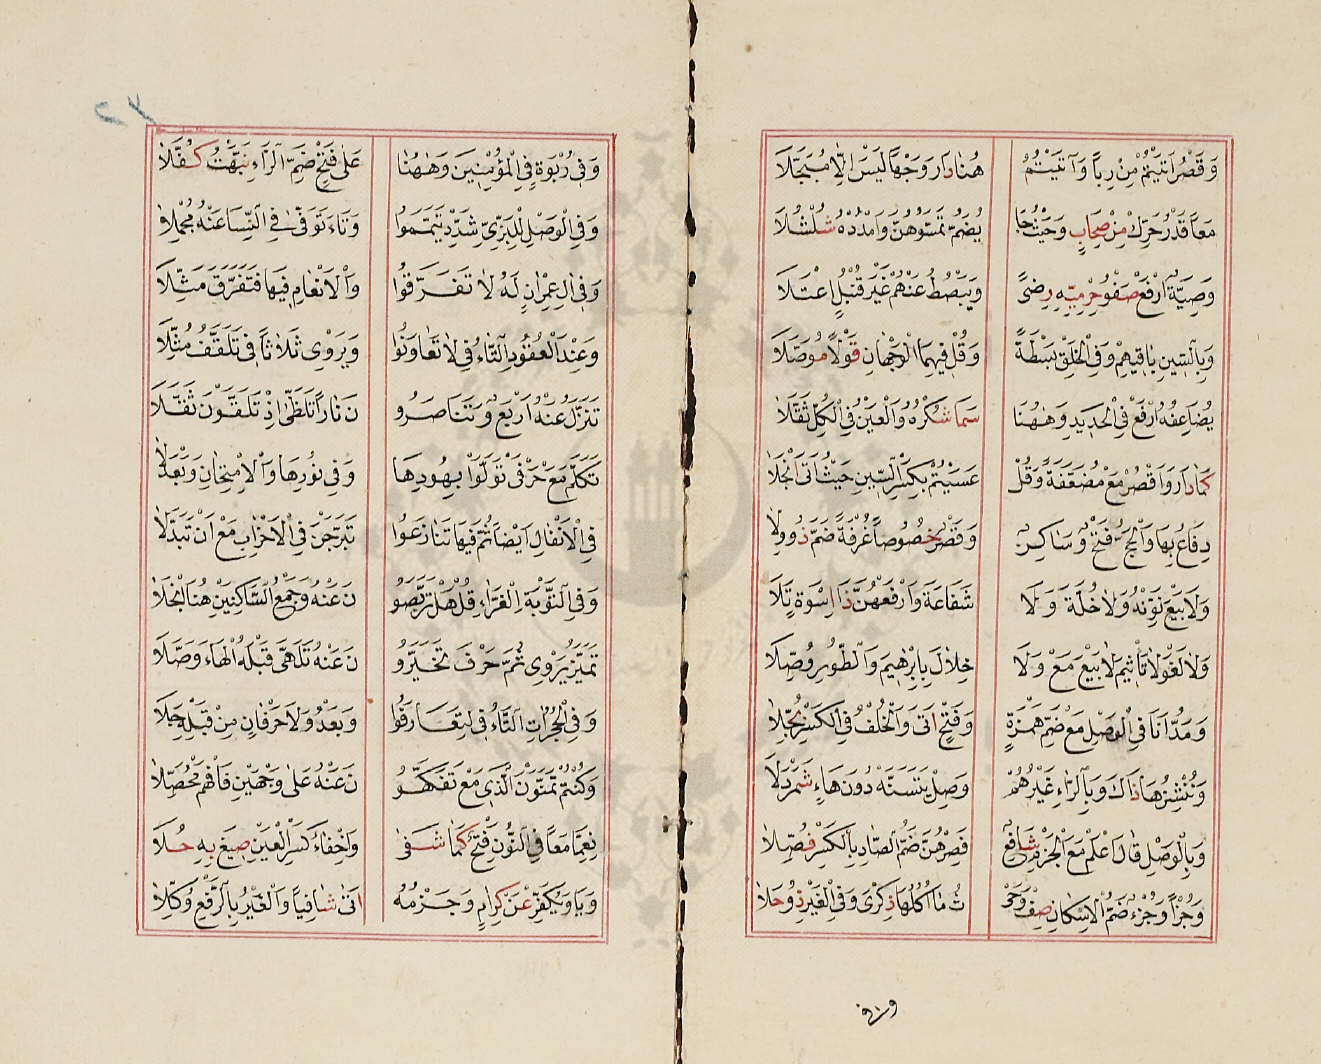 وَقَصْرُ اَتَيْتُمْ مِنْ رِباً وَآتَيْتُمُ هُنَا دَارَ وَجْهاً لَيْسَ اِلَّا مُبَجَّلَا
مَعاً قَدْرُ حَرِّكْ مِنْ صِحَابٍ وَحَيْثُ جَا يُضَمُّ تَمَسُّوهُنَّ وَامْدُدْهُ شُلْشُلَا
وَصِيَّةٌ اُرْفَعْ صَفْوُ حِرْمِيِّهِ رِضىً وَيَبْصُطُ عَنْهُمْ غَيْرَ قُنْبُلٍ اعْتَلَا
وَبِالسِّينِ بَاقِيهِمْ وَفِي الْخَلْقِ بَسْطَةً وَقُلْ فِيهِمَا الْوَجْهَانِ قَوْلاً مُوَصَّلَا
يُضَاعِفَهُ ارْفَعْ فِي الْحَدِيدِ وَهٰهُنَا سَمَا شُكْرُهُ وَالْعَيْنُ فِي الْكُلِّ ثُقِّلَا
كَمَا دَارَ وَاقْصُرْ مَعْ مُضَعَّفَةً وَقُلْ عَسَيْتُمْ بِكَسْرِ السِّينِ حَيْثُ اَتَى انْجَلَا
دِفَاعُ بِهَا وَالْحَجِّ فَتْحٌ وَسَاكِنٌ وَقَصْرُ خُصُوصاً غُرْفَةً ضَمَّ ذُو وِلَا
وَلَا بَيْعَ نَوِّنْهُ وَلَا خُلَّةٌ وَلَا شَفَاعَةَ وَارْفَعْهُنَّ ذَا اِسْوَةٍ تَلَا
وَلَا لَغْوَ لَا تَأْثِيمَ لَا بَيْعَ مَعْ وَلَا خِلَالَ بِاِبْرٰهِيمَ وَالطُّورِ وُصِّلَا
وَمَدُّ اَنَا فِي الْوَصْلِ مَعْ ضَمِّ هَمْزَةٍ وَفَتْحٍ اَتَى وَالْخُلْفُ فِي الْكَسْرِ بُجِّلَا
وَنُنْشِزُهَا ذَاكَ وَبِالرَّاءِ غَيْرُهُمْ وَصِلْ يَتَسَنَّهْ دُونَ هَاءٍ شَمَرْدَلَا
وَبِالْوَصْلِ قَالَ اعْلَمْ مَعَ الْجَزْمِ شَافِعٌ فَصُرْهُنَّ ضَمُّ الصَّادِ بِالْكَسْرِ فُصِّلَا
وَجُزْأً وَجُزْءٌ ضَمَّ الْاِسْكَانَ صِفْ وَحَيْـ ـثُمَا اُكْلُهَا ذِكْرَى وَفِي الْغَيْرِ ذُو حُلَا
وَفِي
وَفِي رُبْوَةٍ فِي الْمُؤْمِنِينَ وَهٰهُنَا عَلٰى فَتْحِ ضَمِّ الرَّاءِ نَبَّهْتُ كُفَّلَا
وَفِي الْوَصْلِ لِلْبَزِّيِّ شَدِّدْ تَيَمَّمُوا وَتَاءَ تَوَفَّى فِي النِّسَا عَنْهُ مُجْمِلَا
وَفِي اٰلِ عِمْرَانٍ لَهُ لَا تَفَرَّقُوا وَالْاَنْعَامِ فِيهَا فَتَفَرَّقَ مَثِّلَا
وَعِنْدَ الْعُقُودِ التَّاءُ فِي لَا تَعَاوَنُوا وَيَرْوِي ثَلَاثاً فِي تَلَقَّفُ مُثَّلَا
تَنَزَّلُ عَنْهُ اَرْبَعٌ وَتَنَاصَرُو نَ نَاراً تَلَظَّى اِذْ تَلَقَّوْنَ ثَقَّلَا
تَكَلَّمُ مَعْ حَرْفَيْ تَوَلَّوْا بِهُودِهَا وَفِي نُورِهَا وَالْاِمْتِحَانِ وَبَعْدَ لَا
فِي الْاَنْفَالِ اَيْضاً ثُمَّ فِيهَا تَنَازَعُوا تَبَرَّجْنَ فِي الْاَحْزَابِ مَعْ اَنْ تَبَدَّلَا
وَفِي التَّوْبَةِ الْغَرَّاءِ قُلْ هَلْ تَرَبَّصُو نَ عَنْهُ وَجَمْعُ السَّاكِنَيْنِ هُنَا انْجَلَا
تَمَيَّزُ يَرْوِي ثُمَّ حَرْفَ تَخَيَّرُو نَ عَنْهُ تَلَهَّى قَبْلَهُ الْهَاءَ وَصَّلَا
وَفِي الْحُجُرَاتِ التَّاءُ فِي لِتَعَارَفُوا وَبَعْدُ وَلَا حَرْفَانِ مِنْ قَبْلِهِ جَلَا
وَكُنْتُمْ تَمَنَّوْنَ الَّذِي مَعْ تَفَكَّهُو نَ عَنْهُ عَلٰى وَجْهَيْنِ فَافْهَمْ مُحَصِّلَا
نِعِمَّا مَعاً فِي النُّونِ فَتْحٌ كَمَا شَفٰى وَاِخْفَاءُ كَسْرِ الْعَيْنِ صِيغَ بِهِ حُلَا
وَيَا وَيُكَفِّرْ عَنْ كِرَامٍ وَجَزْمُهُ اَتٰى شَافِياً وَالْغَيْرُ بِالرَّفْعِ وُكِّلَا